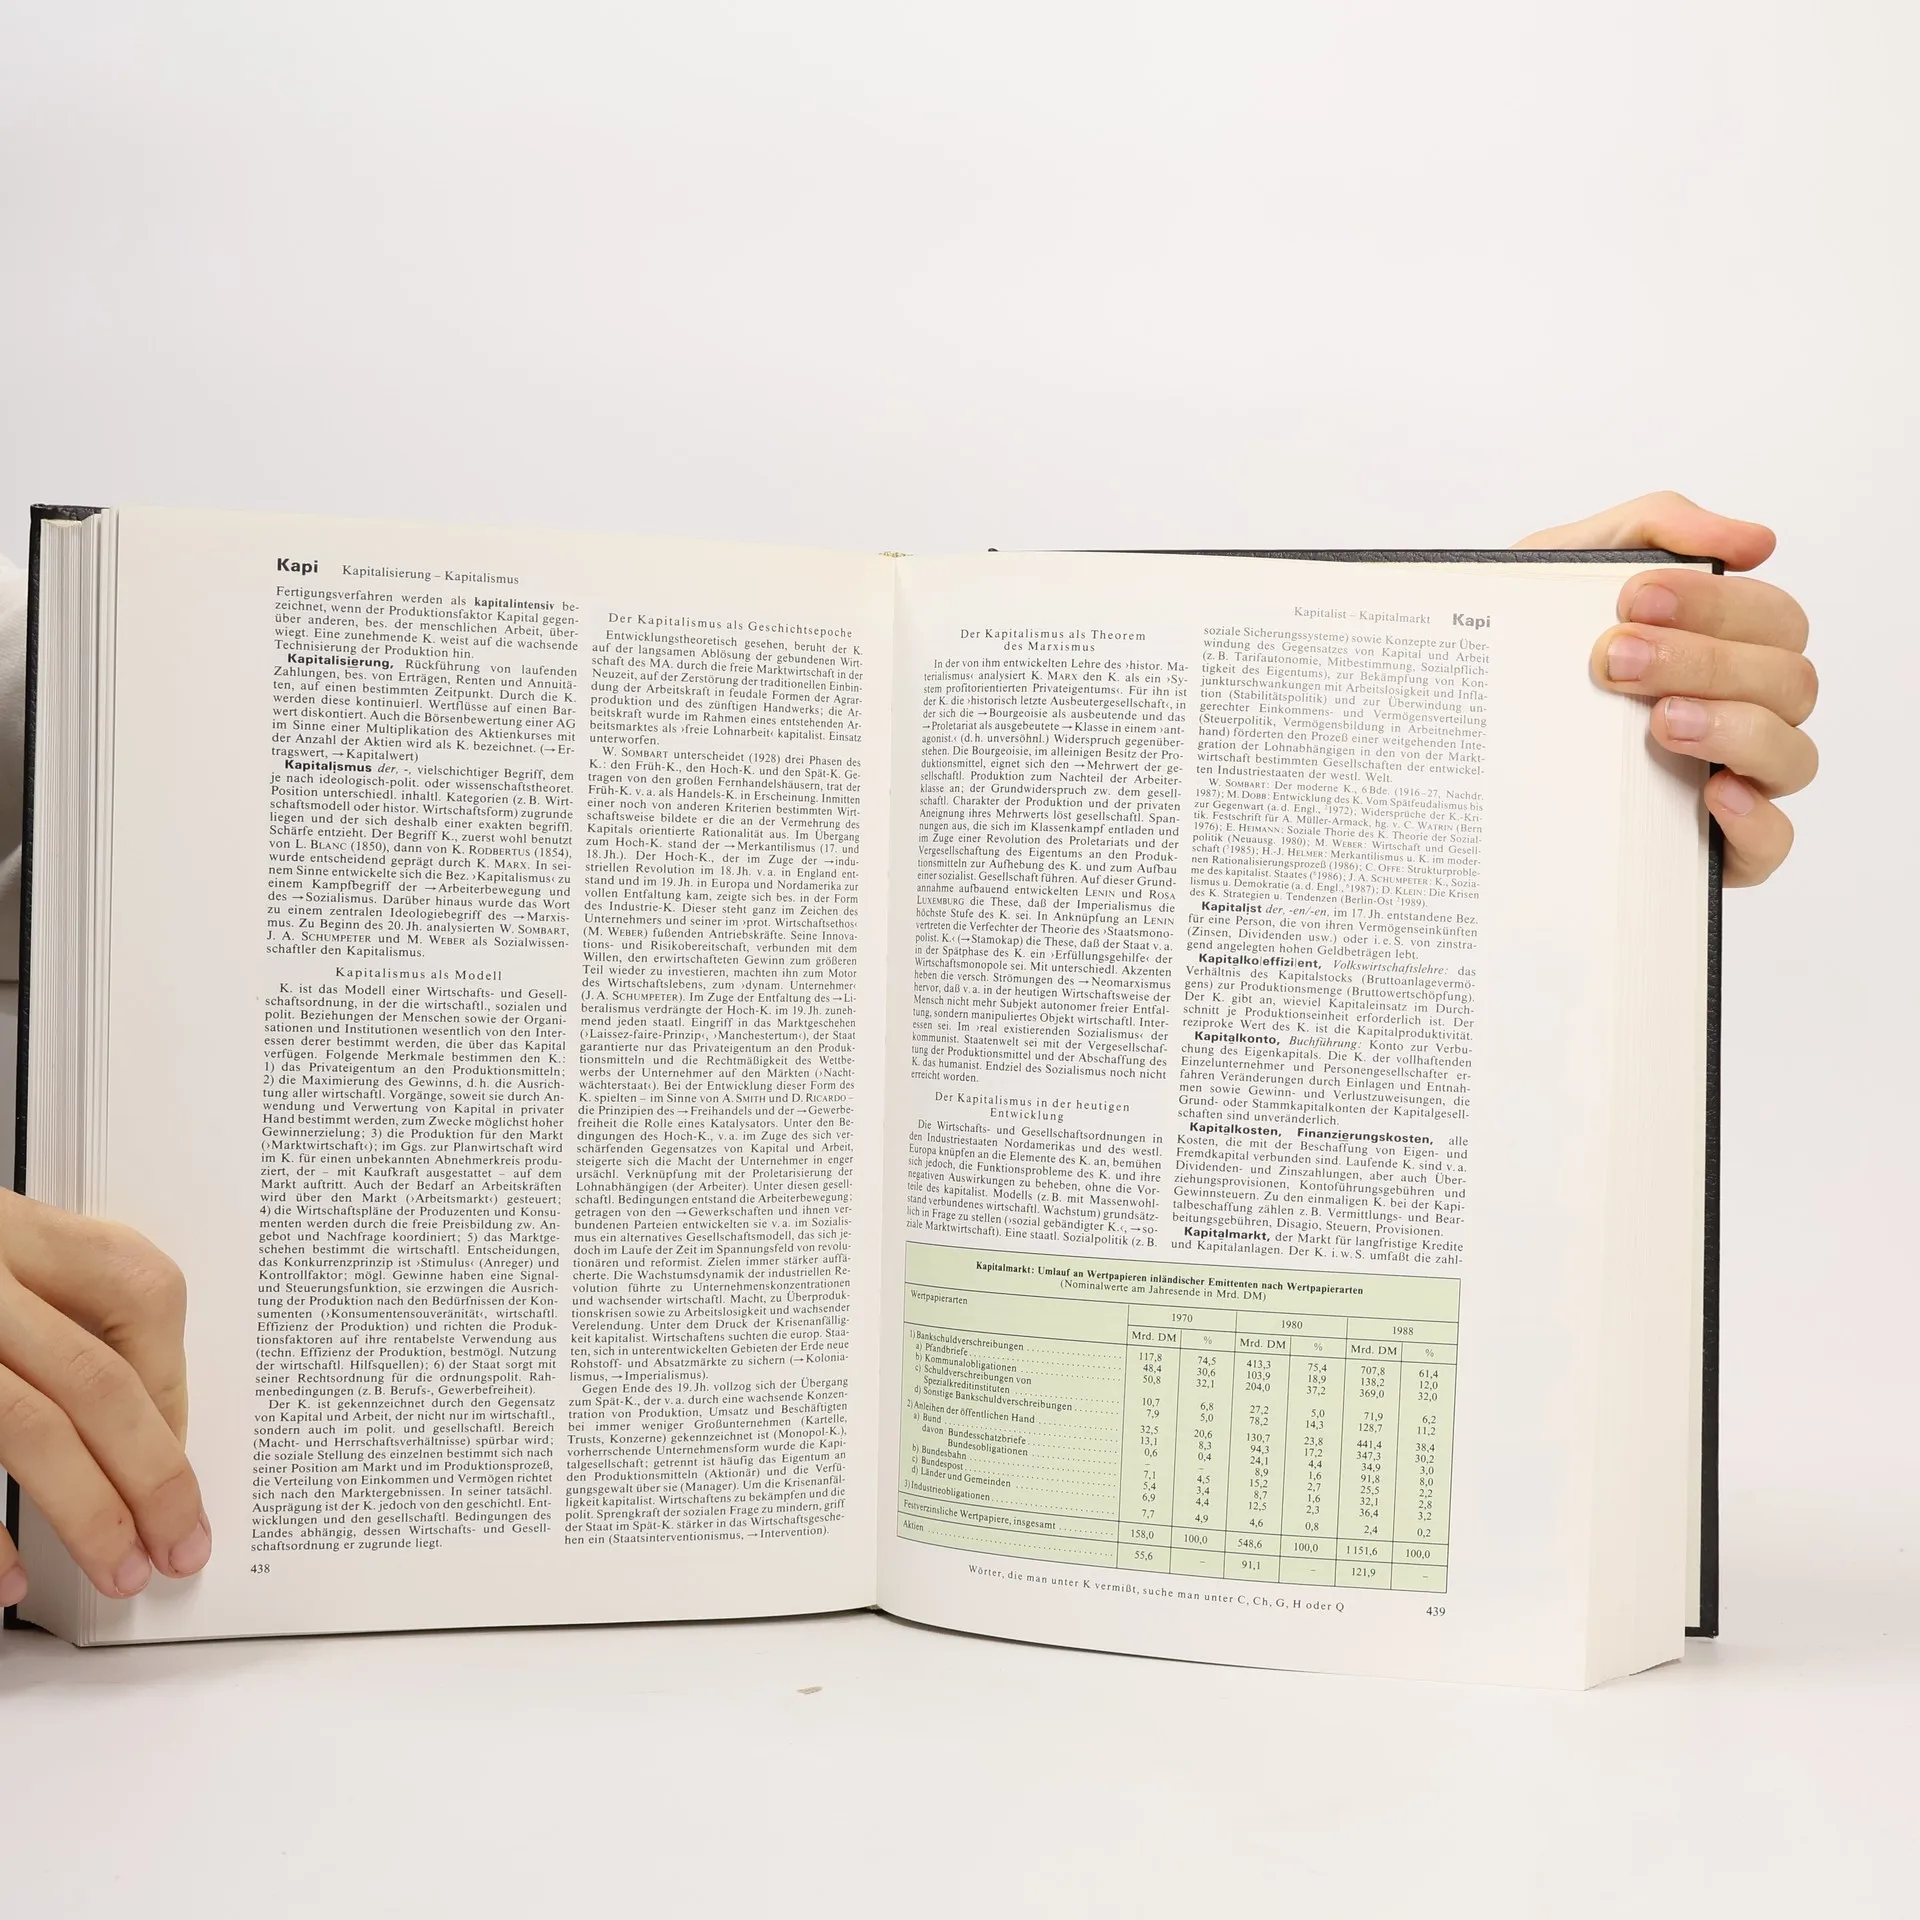 Kapi Kapitalisierung – Kapitalismus
Fertigungsverfahren werden als kapitalintensiv be-
zeichnet, wenn der Produktionsfaktor Kapital gegen-
über anderen, bes. der menschlichen Arbeit, über-
wiegt. Eine zunehmende K. weist auf die wachsende
Technisierung der Produktion hin.
Kapitalisierung, Rückführung von laufenden
Zahlungen, bes. von Erträgen, Renten und Annuitä-
ten, auf einen bestimmten Zeitpunkt. Durch die K.
werden diese kontinuierl. Wertflüsse auf einen Bar-
wert diskontiert. Auch die Börsenbewertung einer AG
im Sinne einer Multiplikation des Aktienkurses mit
der Anzahl der Aktien wird als K. bezeichnet. (→Er-
tragswert, →Kapitalwert)
Kapitalismus der, -, vielschichtiger Begriff, dem
je nach ideologisch-polit. oder wissenschaftstheoret.
Position unterschiedl. inhaltl. Kategorien (z. B. Wirt-
schaftsmodell oder histor. Wirtschaftsform) zugrunde
liegen und der sich deshalb einer exakten begriffl.
Schärfe entzieht. Der Begriff K., zuerst wohl benutzt
von L. BLANC (1850), dann von K. RODBERTUS (1854),
wurde entscheidend geprägt durch K. MARX. In sei-
nem Sinne entwickelte sich die Bez. ›Kapitalismus‹ zu
einem Kampfbegriff der →Arbeiterbewegung und
des →Sozialismus. Darüber hinaus wurde das Wort
zu einem zentralen Ideologiebegriff des →Marxis-
mus. Zu Beginn des 20. Jh. analysierten W. SOMBART,
J. A. SCHUMPETER und M. WEBER als Sozialwissen-
schaftler den Kapitalismus.
Kapitalismus als Modell
K. ist das Modell einer Wirtschafts- und Gesell-
schaftsordnung, in der die wirtschaftl., sozialen und
polit. Beziehungen der Menschen sowie der Organi-
sationen und Institutionen wesentlich von den Inter-
essen derer bestimmt werden, die über das Kapital
verfügen. Folgende Merkmale bestimmen den K.:
1) das Privateigentum an den Produktionsmitteln;
2) die Maximierung des Gewinns, d. h. die Ausrich-
tung aller wirtschaftl. Vorgänge, soweit sie durch An-
wendung und Verwertung von Kapital in privater
Hand bestimmt werden, zum Zwecke möglichst hoher
Gewinnerzielung; 3) die Produktion für den Markt
(›Marktwirtschaft‹); im Ggs. zur Planwirtschaft wird
im K. für einen unbekannten Abnehmerkreis produ-
ziert, der – mit Kaufkraft ausgestattet – auf dem
Markt auftritt. Auch der Bedarf an Arbeitskräften
wird über den Markt (›Arbeitsmarkt‹) gesteuert;
4) die Wirtschaftspläne der Produzenten und Konsu-
menten werden durch die freie Preisbildung zw. An-
gebot und Nachfrage koordiniert; 5) das Marktge-
schehen bestimmt die wirtschaftl. Entscheidungen,
das Konkurrenzprinzip ist ›Stimulus‹ (Anreger) und
Kontrollfaktor; mögl. Gewinne haben eine Signal-
und Steuerungsfunktion, sie erzwingen die Ausrich-
tung der Produktion nach den Bedürfnissen der Kon-
sumenten (›Konsumentensouveränität‹, wirtschaftl.
Effizienz der Produktion) und richten die Produk-
tionsfaktoren auf ihre rentabelste Verwendung aus
(techn. Effizienz der Produktion, bestmögl. Nutzung
der wirtschaftl. Hilfsquellen); 6) der Staat sorgt mit
seiner Rechtsordnung für die ordnungspolit. Rah-
menbedingungen (z. B. Berufs-, Gewerbefreiheit).
Der K. ist gekennzeichnet durch den Gegensatz
von Kapital und Arbeit, der nicht nur im wirtschaftl.,
sondern auch im polit. und gesellschaftl. Bereich
(Macht- und Herrschaftsverhältnisse) spürbar wird;
die soziale Stellung des einzelnen bestimmt sich nach
seiner Position am Markt und im Produktionsprozeß,
die Verteilung von Einkommen und Vermögen richtet
sich nach den Marktergebnissen. In seiner tatsächl.
Ausprägung ist der K. jedoch von den geschichtl. Ent-
wicklungen und den gesellschaftl. Bedingungen des
Landes abhängig, dessen Wirtschafts- und Gesell-
schaftsordnung er zugrunde liegt.
438
Der Kapitalismus als Geschichtsepoche
Entwicklungstheoretisch gesehen, beruht der K.
auf der langsamen Ablösung der gebundenen Wirt-
schaft des MA. durch die freie Marktwirtschaft in der
Neuzeit, auf der Zerstörung der traditionellen Einbin-
dung der Arbeitskraft in feudale Formen der Agrar-
produktion und des zünftigen Handwerks; die Ar-
beitskraft wurde im Rahmen eines entstehenden Ar-
beitsmarktes als ›freie Lohnarbeit‹ kapitalist. Einsatz
unterworfen.
W. SOMBART unterscheidet (1928) drei Phasen des
K.: den Früh-K., den Hoch-K. und den Spät-K. Ge-
tragen von den großen Fernhandelshäusern, trat der
Früh-K. v. a. als Handels-K. in Erscheinung. Inmitten
einer noch von anderen Kriterien bestimmten Wirt-
schaftsweise bildete er die an der Vermehrung des
Kapitals orientierte Rationalität aus. Im Übergang
zum Hoch-K. stand der →Merkantilismus (17. und
18. Jh.). Der Hoch-K., der im Zuge der →indu-
striellen Revolution im 18. Jh. v. a. in England ent-
stand und im 19. Jh. in Europa und Nordamerika zur
vollen Entfaltung kam, zeigte sich bes. in der Form
des Industrie-K. Dieser steht ganz im Zeichen des
Unternehmers und seiner im ›prot. Wirtschaftsethos‹
(M. WEBER) fußenden Antriebskräfte. Seine Innova-
tions- und Risikobereitschaft, verbunden mit dem
Willen, den erwirtschafteten Gewinn zum größeren
Teil wieder zu investieren, machten ihn zum Motor
des Wirtschaftslebens, zum ›dynam. Unternehmer‹
(J. A. SCHUMPETER). Im Zuge der Entfaltung des →Li-
beralismus verdrängte der Hoch-K. im 19. Jh. zuneh-
mend jeden staatl. Eingriff in das Marktgeschehen
(›Laissez-faire-Prinzip‹, ›Manchestertum‹), der Staat
garantierte nur das Privateigentum an den Produk-
tionsmitteln und die Rechtmäßigkeit des Wettbe-
werbs der Unternehmer auf den Märkten (›Nacht-
wächterstaat‹). Bei der Entwicklung dieser Form des
K. spielten – im Sinne von A. SMITH und D. RICARDO –
die Prinzipien des →Freihandels und der →Gewerbe-
freiheit die Rolle eines Katalysators. Unter den Be-
dingungen des Hoch-K., v. a. im Zuge des sich ver-
schärfenden Gegensatzes von Kapital und Arbeit,
steigerte sich die Macht der Unternehmer in enger
ursächl. Verknüpfung mit der Proletarisierung der
Lohnabhängigen (der Arbeiter). Unter diesen gesell-
schaftl. Bedingungen entstand die Arbeiterbewegung;
getragen von den →Gewerkschaften und ihnen ver-
bundenen Parteien entwickelten sie v. a. im Sozialis-
mus ein alternatives Gesellschaftsmodell, das sich je-
doch im Laufe der Zeit im Spannungsfeld von revolu-
tionären und reformist. Zielen immer stärker auffä-
cherte. Die Wachstumsdynamik der industriellen Re-
volution führte zu Unternehmenskonzentrationen
und wachsender wirtschaftl. Macht, zu Überproduk-
tionskrisen sowie zu Arbeitslosigkeit und wachsender
Verelendung. Unter dem Druck der Krisenanfällig-
keit kapitalist. Wirtschaftens suchten die europ. Staa-
ten, sich in unterentwickelten Gebieten der Erde neue
Rohstoff- und Absatzmärkte zu sichern (→Kolonia-
lismus, →Imperialismus).
Gegen Ende des 19. Jh. vollzog sich der Übergang
zum Spät-K., der v. a. durch eine wachsende Konzen-
tration von Produktion, Umsatz und Beschäftigten
bei immer weniger Großunternehmen (Kartelle,
Trusts, Konzerne) gekennzeichnet ist (Monopol-K.),
vorherrschende Unternehmensform wurde die Kapi-
talgesellschaft; getrennt ist häufig das Eigentum an
den Produktionsmitteln (Aktionär) und die Verfü-
gungsgewalt über sie (Manager). Um die Krisenanfäl-
ligkeit kapitalist. Wirtschaftens zu bekämpfen und die
polit. Sprengkraft der sozialen Frage zu mindern, griff
der Staat im Spät-K. stärker in das Wirtschaftsgesche-
hen ein (Staatsinterventionismus, →Intervention).
Kapitalist – Kapitalmarkt Kapi
Der Kapitalismus als Theorem
des Marxismus
In der von ihm entwickelten Lehre des ›histor. Ma-
terialismus‹ analysiert K. MARX den K. als ein ›Sy-
stem profitorientierten Privateigentums‹. Für ihn ist
der K. die ›historisch letzte Ausbeutergesellschaft‹, in
der sich die →Bourgeoisie als ausbeutende und das
→Proletariat als ausgebeutete →Klasse in einem ›ant-
agonist.‹ (d. h. unversöhnl.) Widerspruch gegenüber-
stehen. Die Bourgeoisie, im alleinigen Besitz der Pro-
duktionsmittel, eignet sich den →Mehrwert der ge-
sellschaftl. Produktion zum Nachteil der Arbeiter-
klasse an; der Grundwiderspruch zw. dem gesell-
schaftl. Charakter der Produktion und der privaten
Aneignung ihres Mehrwerts löst gesellschaftl. Span-
nungen aus, die sich im Klassenkampf entladen und
im Zuge einer Revolution des Proletariats und der
Vergesellschaftung des Eigentums an den Produk-
tionsmitteln zur Aufhebung des K. und zum Aufbau
einer sozialist. Gesellschaft führen. Auf dieser Grund-
annahme aufbauend entwickelten LENIN und ROSA
LUXEMBURG die These, daß der Imperialismus die
höchste Stufe des K. sei. In Anknüpfung an LENIN
vertreten die Verfechter der Theorie des ›Staatsmono-
polist. K.‹ (→Stamokap) die These, daß der Staat v. a.
in der Spätphase des K. ein ›Erfüllungsgehilfe‹ der
Wirtschaftsmonopole sei. Mit unterschiedl. Akzenten
heben die versch. Strömungen des →Neomarxismus
hervor, daß v. a. in der heutigen Wirtschaftsweise der
Mensch nicht mehr Subjekt autonomer freier Entfal-
tung, sondern manipuliertes Objekt wirtschaftl. Inter-
essen sei. Im ›real existierenden Sozialismus‹ der
kommunist. Staatenwelt sei mit der Vergesellschaf-
tung der Produktionsmittel und der Abschaffung des
K. das humanist. Endziel des Sozialismus noch nicht
erreicht worden.
Der Kapitalismus in der heutigen
Entwicklung
Die Wirtschafts- und Gesellschaftsordnungen in
den Industriestaaten Nordamerikas und des westl.
Europa knüpfen an die Elemente des K. an, bemühen
sich jedoch, die Funktionsprobleme des K. und ihre
negativen Auswirkungen zu beheben, ohne die Vor-
teile des kapitalist. Modells (z. B. mit Massenwohl-
stand verbundenes wirtschaftl. Wachstum) grundsätz-
lich in Frage zu stellen (›sozial gebändigter K.‹, →so-
ziale Marktwirtschaft). Eine staatl. Sozialpolitik (z. B.
soziale Sicherungssysteme) sowie Konzepte zur Über-
windung des Gegensatzes von Kapital und Arbeit
(z. B. Tarifautonomie, Mitbestimmung, Sozialpflich-
tigkeit des Eigentums), zur Bekämpfung von Kon-
junkturschwankungen mit Arbeitslosigkeit und Infla-
tion (Stabilitätspolitik) und zur Überwindung un-
gerechter Einkommens- und Vermögensverteilung
(Steuerpolitik, Vermögensbildung in Arbeitnehmer-
hand) förderten den Prozeß einer weitgehenden Inte-
gration der Lohnabhängigen in den von der Markt-
wirtschaft bestimmten Gesellschaften der entwickel-
ten Industriestaaten der westl. Welt.
W. SOMBART: Der moderne K., 6 Bde. (1916–27, Nachdr.
1987); M. DOBB: Entwicklung des K. Vom Spätfeudalismus bis
zur Gegenwart (a. d. Engl., ²1972); Widersprüche der K.-Kri-
tik. Festschrift für A. Müller-Armack, hg. v. C. WATRIN (Bern
1976); E. HEIMANN: Soziale Thorie des K. Theorie der Sozial-
politik (Neuausg. 1980); M. WEBER: Wirtschaft und Gesell-
schaft (⁵1985); H.-J. HELMER: Merkantilismus u. K. im moder-
nen Rationalisierungsprozeß (1986); C. OFFE: Strukturproble-
me des kapitalist. Staates (⁶1986); J. A. SCHUMPETER: K., Sozia-
lismus u. Demokratie (a. d. Engl., ⁶1987); D. KLEIN: Die Krisen
des K. Strategien u. Tendenzen (Berlin-Ost ²1989).
Kapitalist der, -en/-en, im 17. Jh. entstandene Bez.
für eine Person, die von ihren Vermögenseinkünften
(Zinsen, Dividenden usw.) oder i. e. S. von zinstra-
gend angelegten hohen Geldbeträgen lebt.
Kapitalko|effizi|ent, Volkswirtschaftslehre: das
Verhältnis des Kapitalstocks (Bruttoanlagevermö-
gens) zur Produktionsmenge (Bruttowertschöpfung).
Der K. gibt an, wieviel Kapitaleinsatz im Durch-
schnitt je Produktionseinheit erforderlich ist. Der
reziproke Wert des K. ist die Kapitalproduktivität.
Kapitalkonto, Buchführung: Konto zur Verbu-
chung des Eigenkapitals. Die K. der vollhaftenden
Einzelunternehmer und Personengesellschafter er-
fahren Veränderungen durch Einlagen und Entnah-
men sowie Gewinn- und Verlustzuweisungen, die
Grund- oder Stammkapitalkonten der Kapitalgesell-
schaften sind unveränderlich.
Kapitalkosten, Finanzierungskosten, alle
Kosten, die mit der Beschaffung von Eigen- und
Fremdkapital verbunden sind. Laufende K. sind v. a.
Dividenden- und Zinszahlungen, aber auch Über-
ziehungsprovisionen, Kontoführungsgebühren und
Gewinnsteuern. Zu den einmaligen K. bei der Kapi-
talbeschaffung zählen z. B. Vermittlungs- und Bear-
beitungsgebühren, Disagio, Steuern, Provisionen.
Kapitalmarkt, der Markt für langfristige Kredite
und Kapitalanlagen. Der K. i. w. S. umfaßt die zahl-
Kapitalmarkt: Umlauf an Wertpapieren inländischer Emittenten nach Wertpapierarten
(Nominalwerte am Jahresende in Mrd. DM)
Wertpapierarten 1970 1980 1988
Mrd. DM % Mrd. DM % Mrd. DM %
1) Bankschuldverschreibungen 117,8 74,5 413,3 75,4 707,8 61,4
a) Pfandbriefe 48,4 30,6 103,9 18,9 138,2 12,0
b) Kommunalobligationen 50,8 32,1 204,0 37,2 369,0 32,0
c) Schuldverschreibungen von
Spezialkreditinstituten 10,7 6,8 27,2 5,0 71,9 6,2
d) Sonstige Bankschuldverschreibungen 7,9 5,0 78,2 14,3 128,7 11,2
2) Anleihen der öffentlichen Hand 32,5 20,6 130,7 23,8 441,4 38,4
a) Bund 13,1 8,3 94,3 17,2 347,3 30,2
davon Bundesschatzbriefe 0,6 0,4 24,1 4,4 34,9 3,0
Bundesobligationen – – 8,9 1,6 91,8 8,0
b) Bundesbahn 7,1 4,5 15,2 2,7 25,5 2,2
c) Bundespost 5,4 3,4 8,7 1,6 32,1 2,8
d) Länder und Gemeinden 6,9 4,4 12,5 2,3 36,4 3,2
3) Industrieobligationen 7,7 4,9 4,6 0,8 2,4 0,2
Festverzinsliche Wertpapiere, insgesamt 158,0 100,0 548,6 100,0 1 151,6 100,0
Aktien 55,6 – 91,1 – 121,9 –
Wörter, die man unter K vermißt, suche man unter C, Ch, G, H oder Q
439